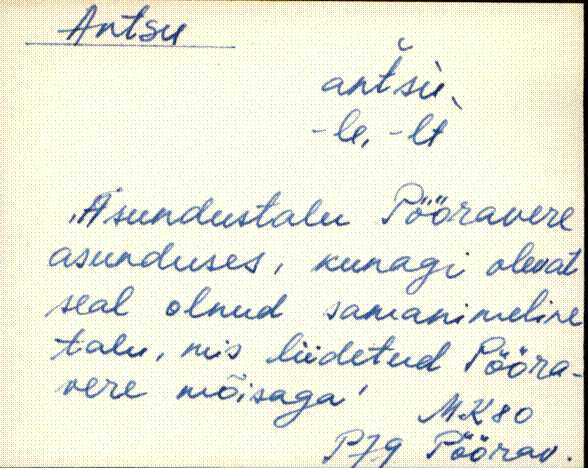 Antsu
antšu̬,
-le, -lt
‚Asundustalu Pööravere
asunduses, kunagi olevat
seal olnud samanimeline
talu, mis liidetud Pööra-
vere mõisaga'
MK80
PJg Pöörav.